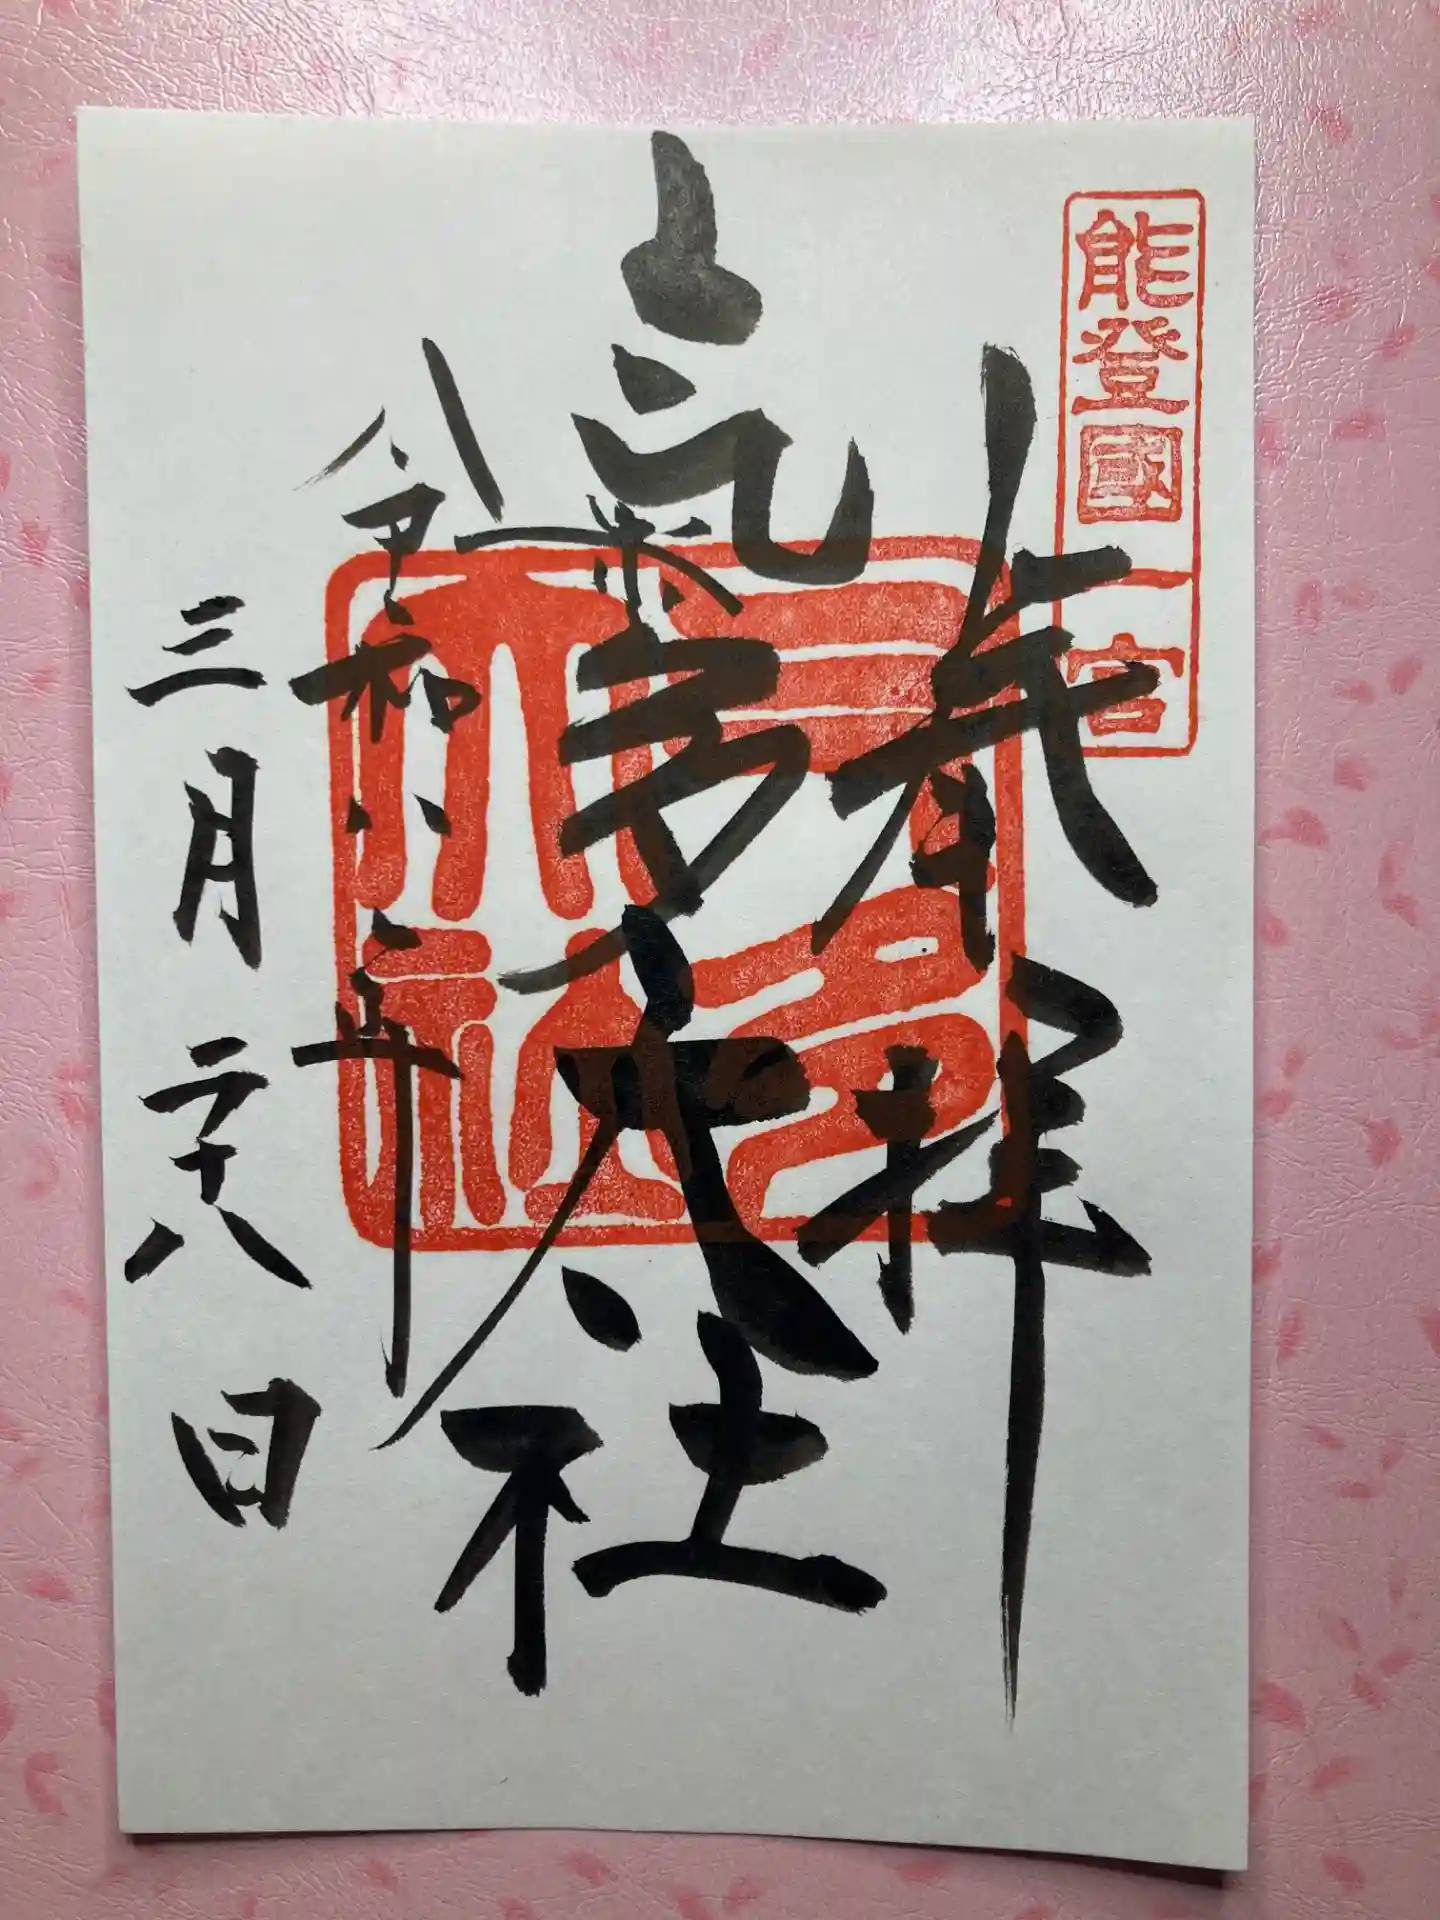 能登國一宮
奉拝
氣多大社
令和八年
三月二十八日